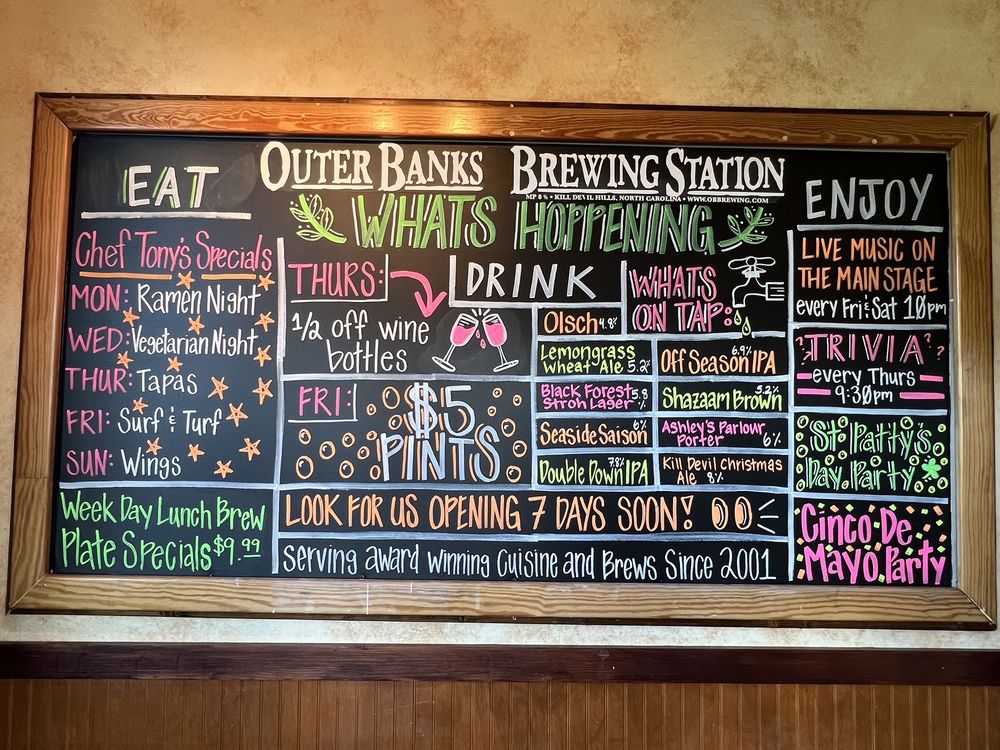 OUTER BANKS BREWING STATION
MP 8 ½ • KILL DEVIL HILLS, NORTH CAROLINA • WWW.OBBREWING.COM
WHATS HOPPENING
EAT
Chef Tony's Specials
MON: Ramen Night
WED: Vegetarian Night
THUR: Tapas
FRI: Surf & Turf
SUN: Wings
Week Day Lunch Brew
Plate Specials $9.99
THURS:
1/2 off wine
bottles
FRI:
$5
PINTS
DRINK
WHATS
ON TAP:
Olsch 4.8%
Lemongrass
Wheat Ale 5.2%
Off Season IPA 6.9%
Black Forest
Stroh Lager 5.8%
Shazaam Brown 5.2%
Seaside Saison 6%
Ashley's Parlour
Porter 6%
Double Down IPA 7.8%
Kill Devil Christmas
Ale 8%
LOOK FOR US OPENING 7 DAYS SOON!
Serving award winning Cuisine and Brews Since 2001
ENJOY
LIVE MUSIC ON
THE MAIN STAGE
every Fri & Sat 10pm
?TRIVIA??
every Thurs
9:30pm
St. Patty's
Day Party
Cinco De
Mayo Party